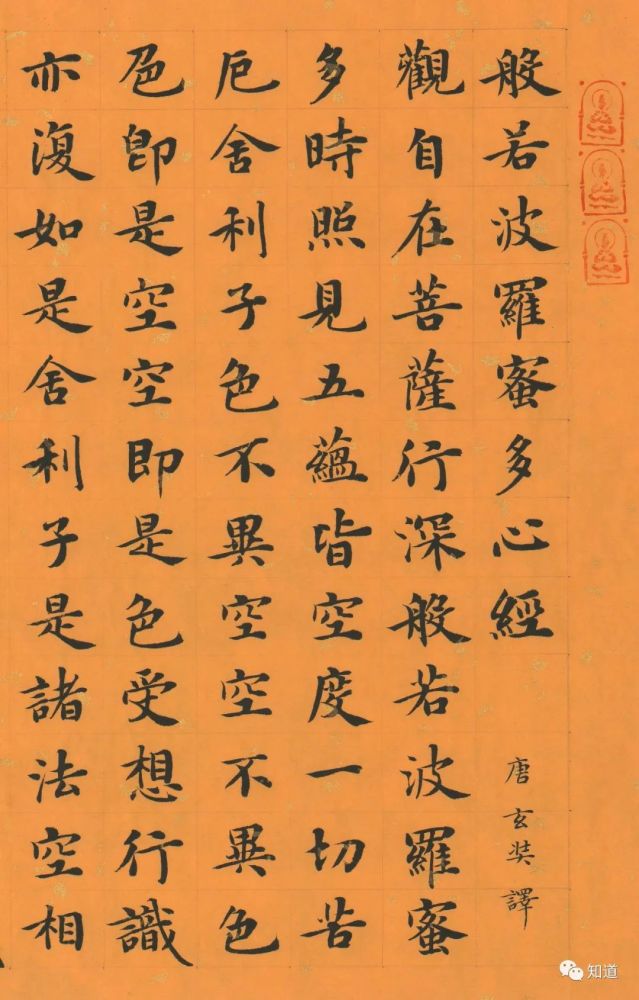 般若波羅蜜多心經
唐玄奘譯
觀自在菩薩行深般若波羅蜜
多時照見五蘊皆空度一切苦
厄舍利子色不異空空不異色
色即是空空即是色受想行識
亦復如是舍利子是諸法空相
知道